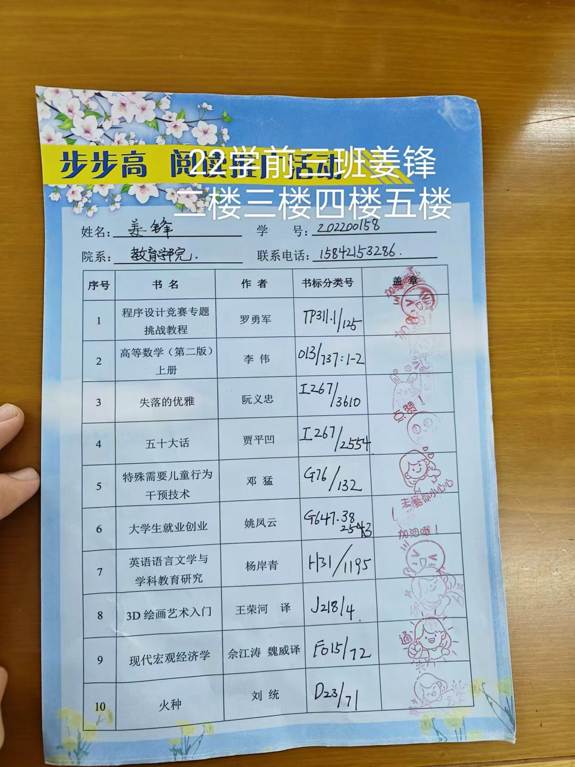 步步高 阅读推广活动
22学前二班姜锋
二楼三楼四楼五楼
姓名: 姜锋 学 号: 202200158
院系: 教育学院. 联系电话: 15842153286.
序号 书 名 作 者 书标分类号 盖 章
1 程序设计竞赛专题挑战教程 罗勇军 TP311.1/125
2 高等数学（第二版）上册 李 伟 013/737:1-2
3 失落的优雅 阮义忠 I267/3610
4 五十大话 贾平凹 I267/2554
5 特殊需要儿童行为干预技术 邓 猛 G76/132
6 大学生就业创业 姚凤云 G647.38
7 英语语言文学与学科教育研究 杨岸青 H31/1195
8 3D 绘画艺术入门 王荣河 译 J218/4
9 现代宏观经济学 佘江涛 魏威译 F015/72
10 火种 刘 统 D23/71
点赞！
加油噢！